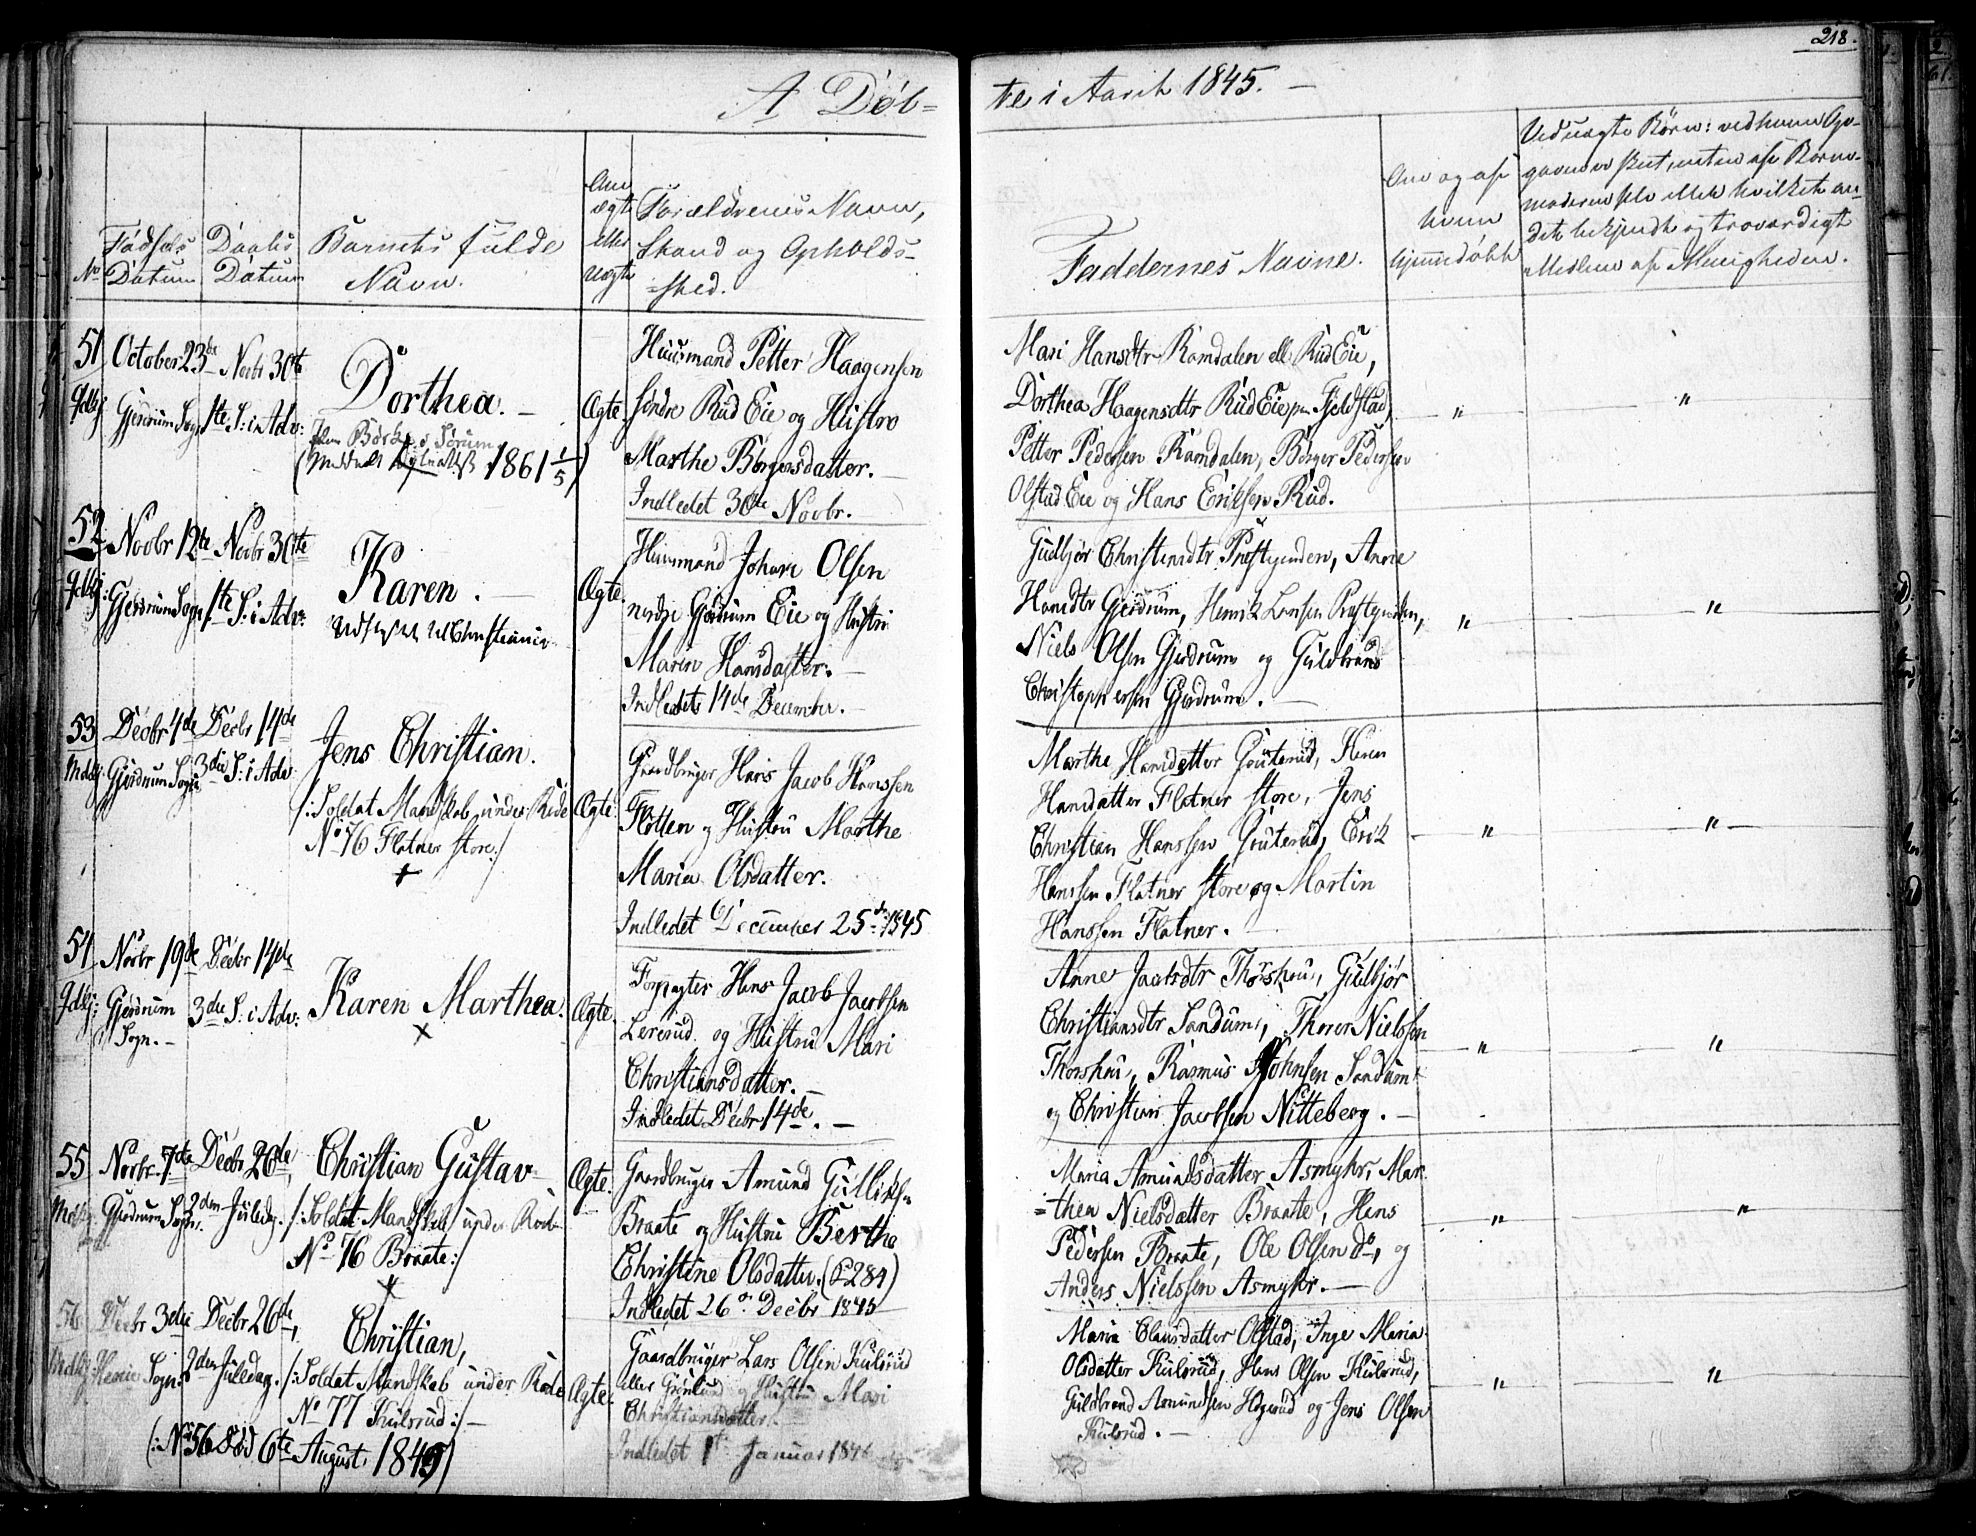 218.
A Døb-
te i Aaret 1845. —
No
Fødsels
Datum
Daabs
Datum
Barnets fulde
Navn.
Om
ægte
eller
uægte
Forældrenes Navn,
Stand og Opholds-
sted.
Faddernes Navne.
Om og af
hvem
hjemmedøbt
Veduægte Børn: ved hvem Op-
gaven er skeet, enten af Barne-
moderen selv eller hvilket an-
det bekjendt og troværdigt
Medlem af Menigheden.
51
October 23de
Novbr 30te
Qdkj
Gjerdrum Sogn
1ste S: i Adv:
Dorthea. —
1861 1/5)
Ægte
Huusmand Petter Haagensen
søndre Rud Eie og Hustro
Marthe Børgersdatter. —
Indledet 30te Novbr.
Mari Hansdtr Ramdalen ell Rud Eie,
Dorthea Haagensdtr Rud Eie pn Fjeldstad,
Petter Pedersen Ramdalen, Børger Pedersen
Olstad Eie og Hans Eriksen Rud.
52
Novbr 12te
Novbr 30te
Qdkj:
Gjerdrum Sogn
1ste S: i Adv:
Karen. —
Udflyttet til Christiania
Ægte
Huusmand Johan Olsen
nedre Gjerdrum Eie og Hustru
Maren Hansdatter. —
Indledet 14de December. —
Gudbjør Christensdtr Præstgarden, Anne
Hansdtr Gjerdrum, Henrik Larsen Præstgarden,
Niels Olsen Gjerdrum og Guldbrand
Christophersen Gjerdrum. —
53
Decbr 4de
Decbr 14de
Mdkj:
Gjerdrum Sogn
3die S: i Adv:
Jens Christian.
/: Soldat Mandskab under Rode
No 76 Flatner store :/
+
Ægte
Gaardbruger Hans Jacob Hanssen
Flotten og Hustru Marthe
Maria Olsdatter.
Indledet December 25de 1845
Marthe Hansdatter Gruterud, Karen
Hansdatter Flatner store, Jens
Christian Hanssen Gruterud, Erik
Hanssen Flatner store og Martin
Hanssen Flatner.
54
Novbr 19de
Decbr 14de
Qdkj:
Gjerdrum
Sogn. —
3die S: i Adv:
Karen Marthea.
×
Ægte
Forpagter Hans Jacob Jacobsen
Lererud og Hustru Mari
Christiansdatter. —
Indledet Decbr 14de. —
Anne Jacobsdtr Thorshou, Gulbjør
Christiansdtr Sandum, Thorer Nielssen
Thorshou, Rasmus Johnsen Sandum
og Christian Jacobsen Nitteberg. —
55
Novbr. 7de
Decbr 26de,
Mdkj:
Gjerdrum Sogn.
2den Juledag.
Christian Gustav
/: Soldat Mandskab under Rode
No 76 Braate :/
Ægte.
Gaardbruger Amund Gulliksen
Braate og Hustru Berthe
Christine Olsdatter. (S 284)
Indledet 26de Decbr 1845
Maria Amundsdatter Asmyhr, Mar-
thea Nielsdatter Braate, Hans
Pedersen Braate, Ole Olsen do, og
Anders Nielssen Asmyhr. —
56
Decbr 3die
Decbr 26de,
Mdkj:
Heni Sogn.
2den Juledag.
Christian,
/: Soldat Mandskab under Rode
No 77 Kulsrud :/ —
(: No 56 Død 6te August 1849)
Ægte.
Gaardbruger Lars Olsen Kulsrud
eller Grønlund og Hustru Mari
Christiansdatter.
Indledet 1te Januar 1846
Maria Clausdatter Olstad, Inge Maria
Olsdatter Kulsrud, Hans Olsen Kulsrud,
Guldbrand Amundsen Hogsrud og Jens Olsen
Kulsrud. —